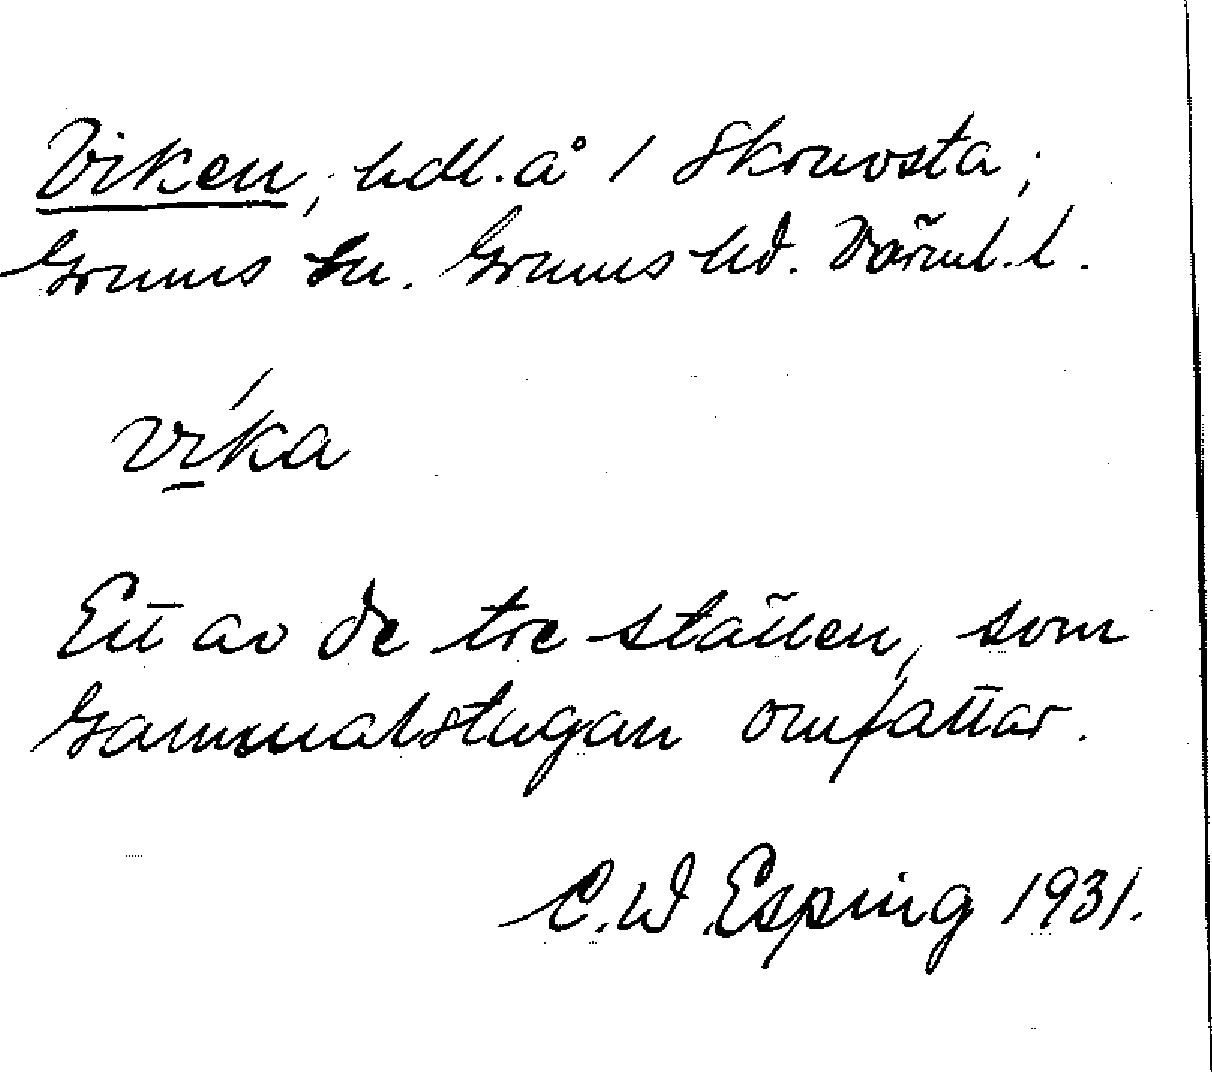 Viken, hdl. å 1 Skruvsta;
Grums sn. Grums hd. Värml. l.
víka
Ett av de tre ställen, som
Gammalstugan omfattar.
C. W. Esping 1931.